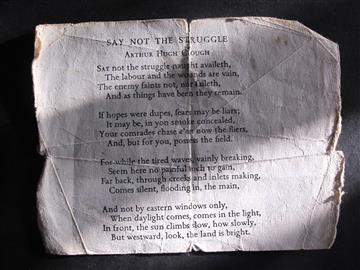 SAY NOT THE STRUGGLE
ARTHUR HUGH CLOUGH
SAY not the struggle naught availeth,
The labour and the wounds are vain,
The enemy faints not, nor faileth,
And as things have been they remain.
If hopes were dupes, fears may be liars;
It may be, in yon smoke concealed,
Your comrades chase e'en now the fliers,
And, but for you, possess the field.
For while the tired waves, vainly breaking,
Seem here no painful inch to gain,
Far back, through creeks and inlets making,
Comes silent, flooding in, the main,
And not by eastern windows only,
When daylight comes, comes in the light,
In front, the sun climbs slow, how slowly,
But westward, look, the land is bright.